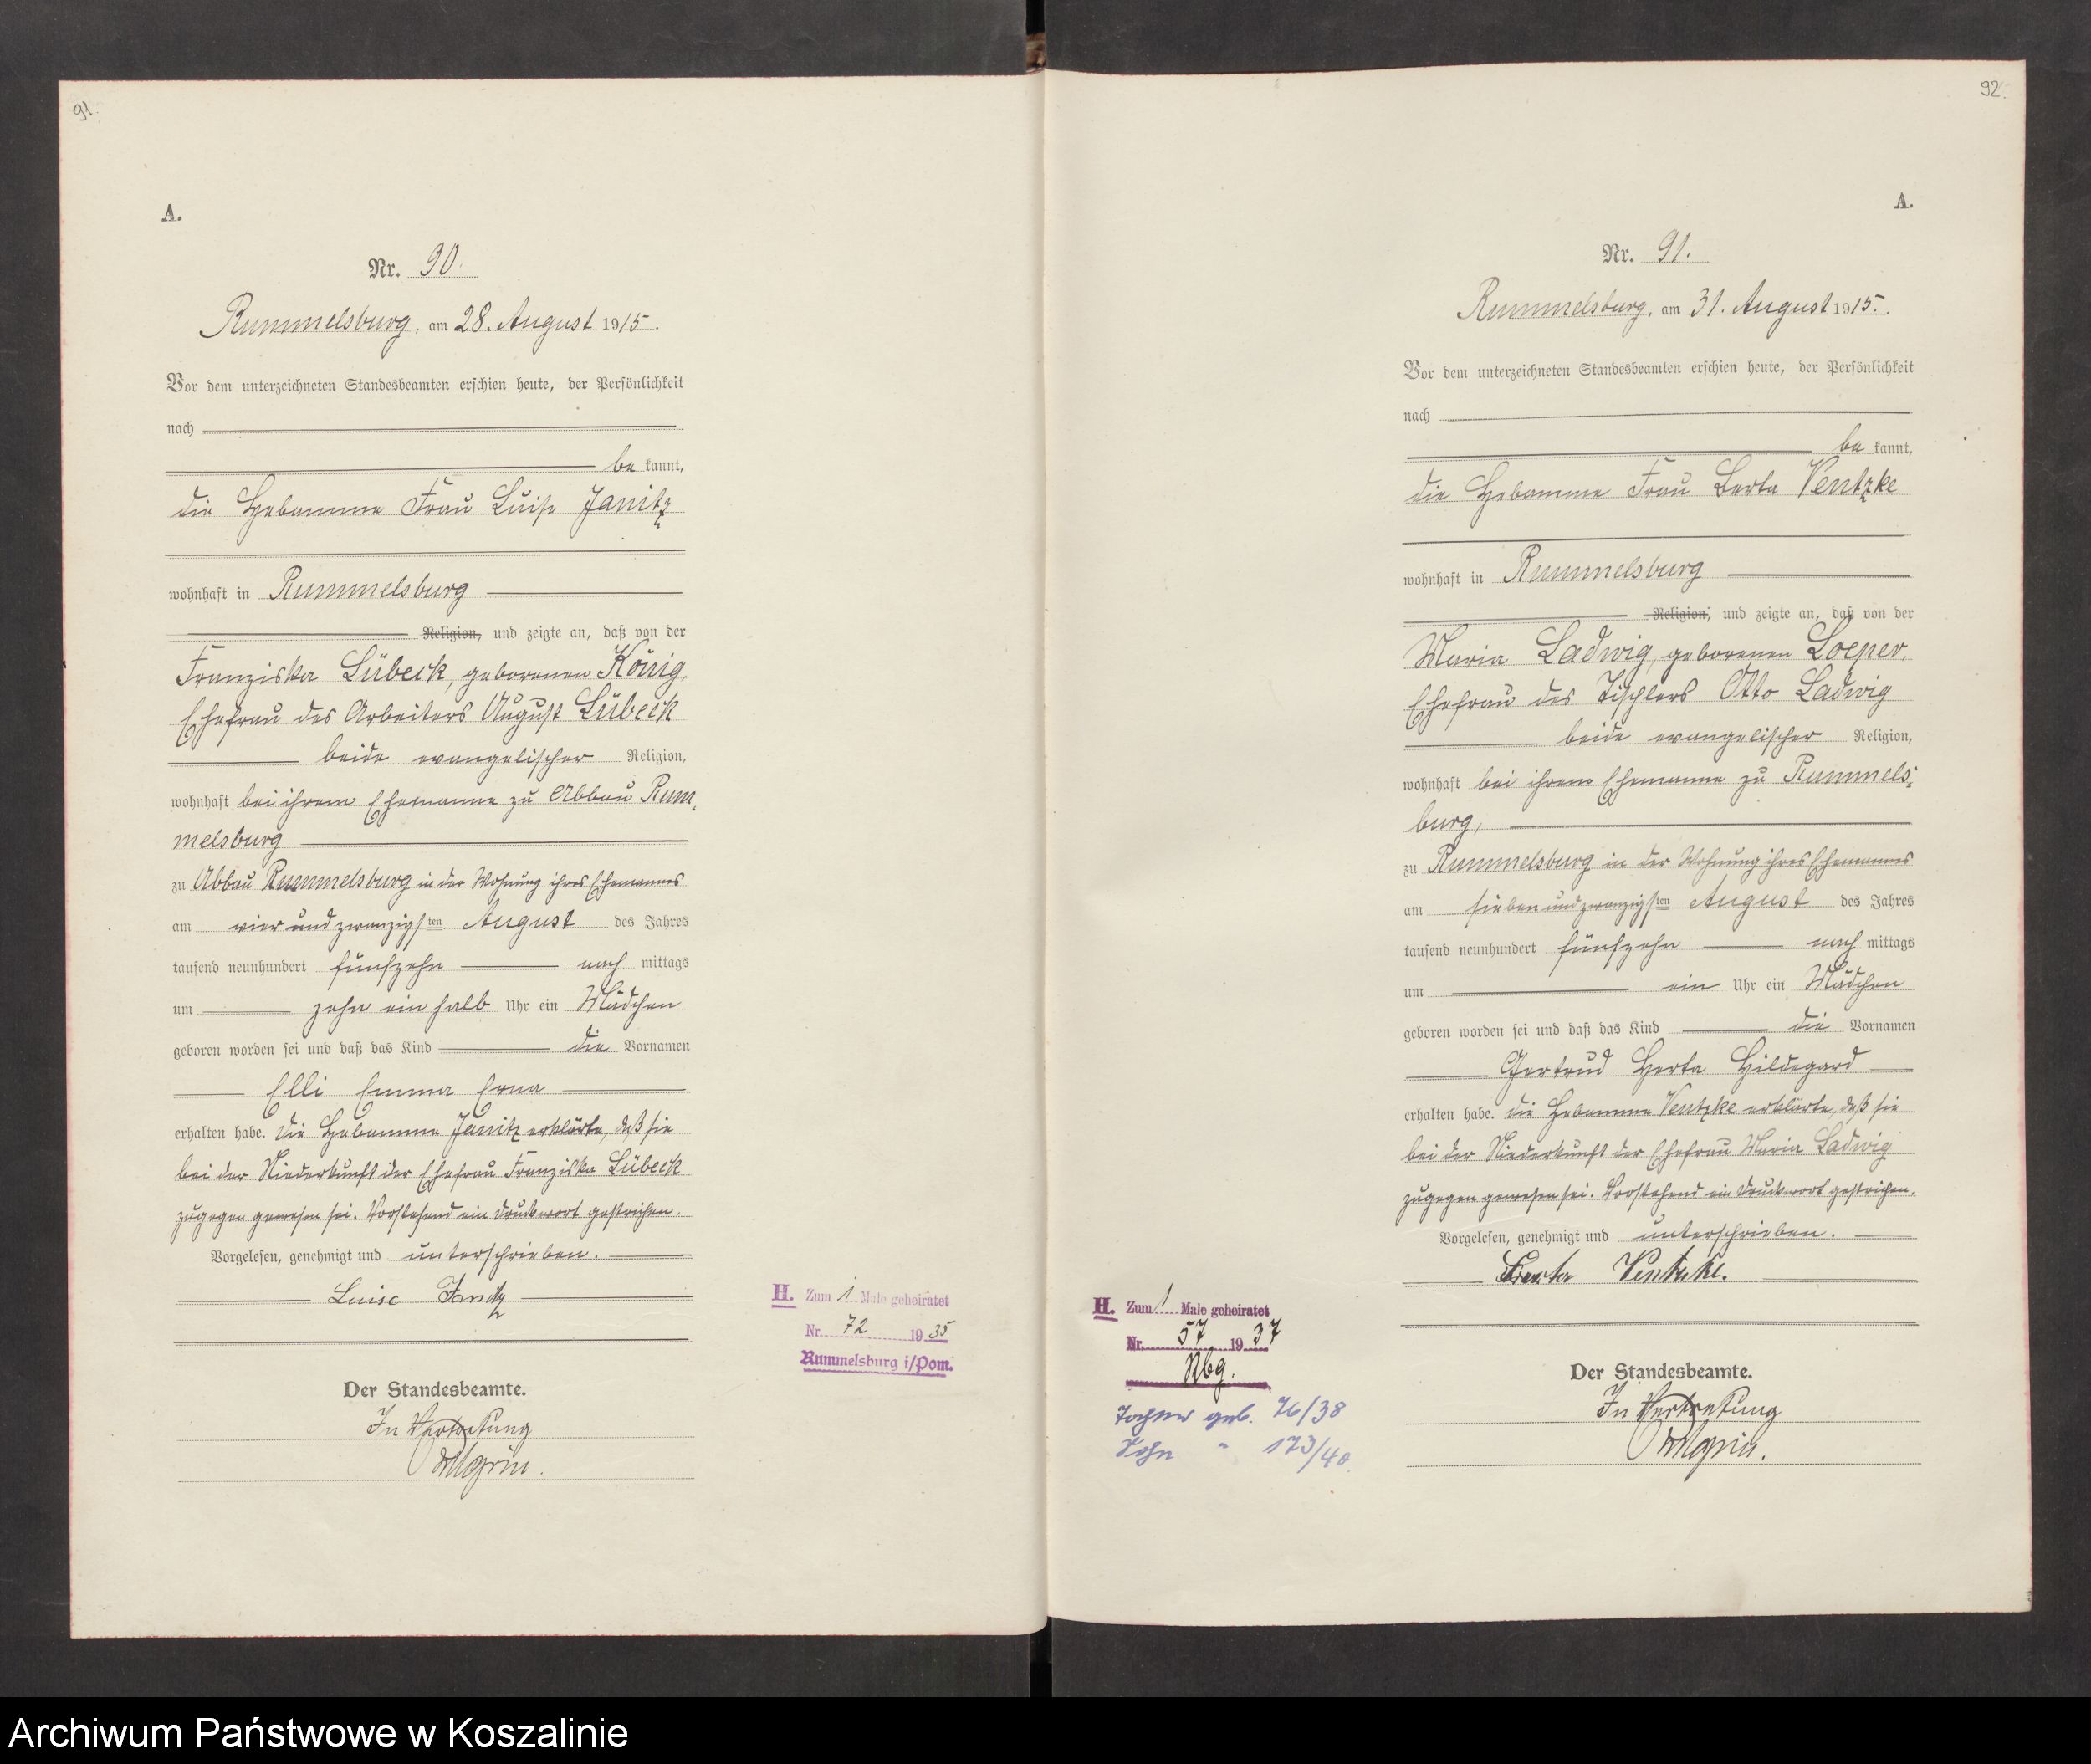 91.
A.
Nr. 90.
Rummelsburg, am 28. August 1915.
Vor dem unterzeichneten Standesbeamten erschien heute, der Persönlichkeit
nach
be kannt,
die Hebamme Frau Luise Janitz
wohnhaft in Rummelsburg
Religion, und zeigte an, daß von der
Franziska Lübeck, geborenen König,
Ehefrau des Arbeiters August Lübeck
beide evangelischer Religion,
wohnhaft bei ihrem Ehemanne zu Abbau Rum-
melsburg
zu Abbau Rummelsburg in der Wohnung ihres Ehemannes
am vier und zwanzigsten August des Jahres
tausend neunhundert fünfzehn nach mittags
um zehn ein halb Uhr ein Mädchen
geboren worden sei und daß das Kind die Vornamen
Elli Emma Erna
erhalten habe. Die Hebamme Janitz erklärte, daß sie
bei der Niederkunft der Ehefrau Franziska Lübeck
zugegen gewesen sei. Vorstehend ein Druckwort gestrichen.
Vorgelesen, genehmigt und unterschrieben.
Luise Janitz
Der Standesbeamte.
In Vertretung
H. Zum 1 Male geheiratet
Nr. 72 1935
Rummelsburg i/Pom.
92.
A.
Nr. 91.
Rummelsburg, am 31. August 1915.
Vor dem unterzeichneten Standesbeamten erschien heute, der Persönlichkeit
nach
be kannt,
die Hebamme Frau Berta Ventzke
wohnhaft in Rummelsburg
Religion, und zeigte an, daß von der
Maria Ladwig, geborenen Loeper,
Ehefrau des Tischlers Otto Ladwig
beide evangelischer Religion,
wohnhaft bei ihrem Ehemanne zu Rummels-
burg,
zu Rummelsburg in der Wohnung ihres Ehemannes
am sieben und zwanzigsten August des Jahres
tausend neunhundert fünfzehn nach mittags
um ein Uhr ein Mädchen
geboren worden sei und daß das Kind die Vornamen
Gertrud Herta Hildegard
erhalten habe. Die Hebamme Ventzke erklärte, daß sie
bei der Niederkunft der Ehefrau Maria Ladwig
zugegen gewesen sei. Vorstehend ein Druckwort gestrichen.
Vorgelesen, genehmigt und unterschrieben.
Berta Ventzke.
Der Standesbeamte.
In Vertretung
H. Zum 1 Male geheiratet
Nr. 57 1937
Rbg.
Tochter geb. 76/38
Sohn " 173/40.
Archiwum Państwowe w Koszalinie